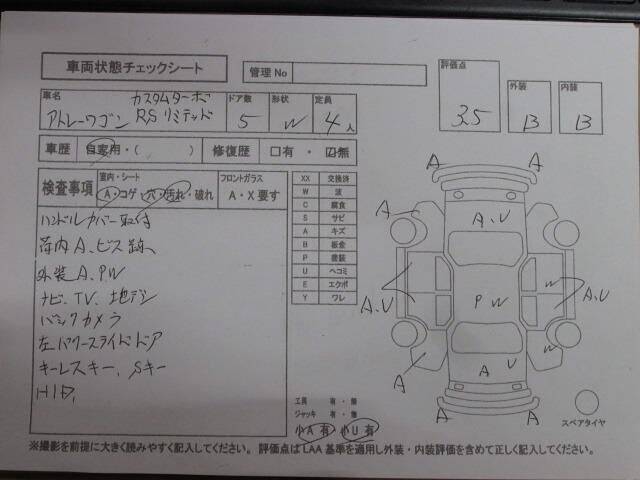 車両状態チェックシート
管理No
評価点 3.5
外装 B
内装 B
車名 アトレーワゴン カスタムターボ RSリミテッド
ドア数 5
形状 W
定員 4人
車歴 自家用・( )
修復歴 口有・口無
検査事項
室内・シート
A・コゲ・穴・汚れ・破れ
フロントガラス
A・X要す
XX 交換済
W 波
C 腐食
S サビ
A キズ
B 板金
P 塗装
U ヘコミ
E エクボ
Y ワレ
ハンドルカバー取付
荷内A、ビス跡、
外装A、P、W
ナビ、TV、地デジ
バックカメラ
左パワースライドドア
キーレスキー、Sキー
HID、
A A
A A、U
A、U P W W A、U
W
A A U
A A
工具 有・無
ジャッキ 有・無
小A有 小U有
スペアタイヤ
※撮影を前提に大きく読みやすく記入してください。評価点はLAA基準を適用し外装・内装評価を含めて正しく記入してください。